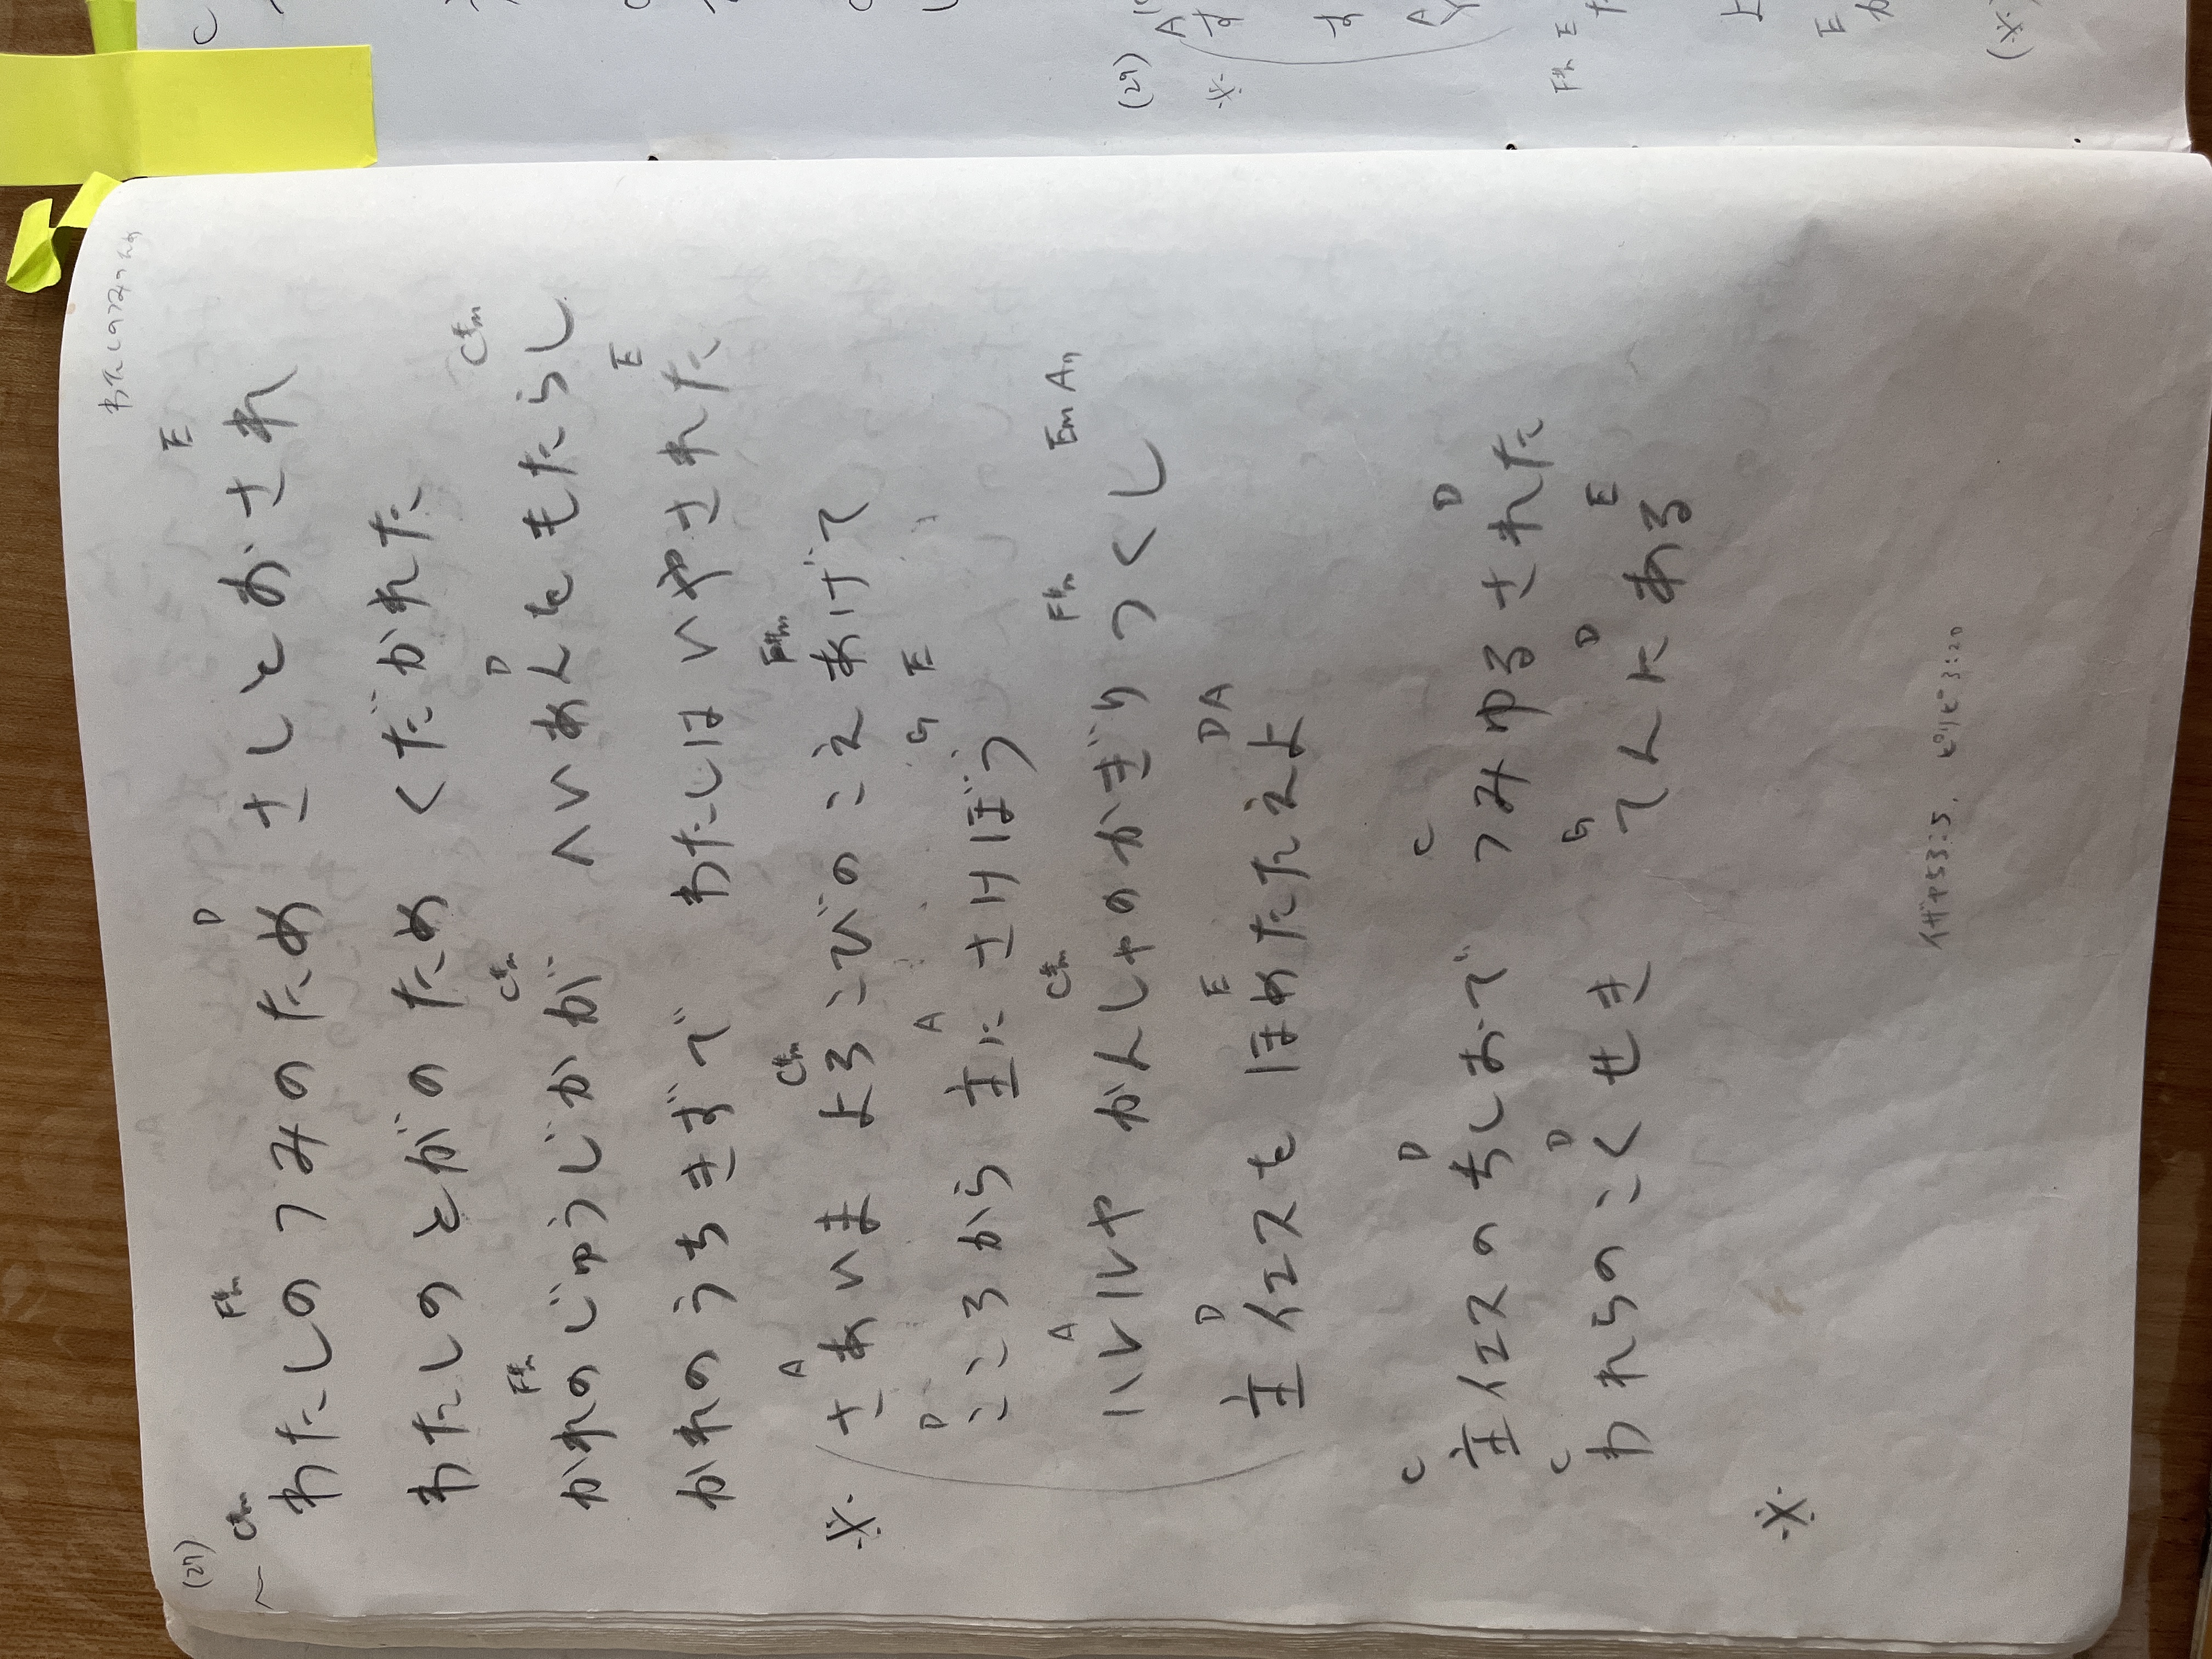 (27)
わたしのつみのため
C#m F#m D E
わたしのつみのため さしとおされ
わたしのとがのため くだかれた
F#m C#m D C#m
かれのじゅうじかが へいあんをもたらし
E
かれのうちきずで わたしはいやされた
A C#m F#m
※ さあいま よろこびのこえあげて
D A G E
こころから 主にさけぼう
A C#m F#m Em A7
ハレルヤ かんしゃのかぎりつくし
D E D A
主イエスを ほめたたえよ
C D C D
主イエスのちしおで つみゆるされた
C D G D E
われらのこくせき てんにある
※
イザヤ53:5. ピリピ3:20
(29)
※